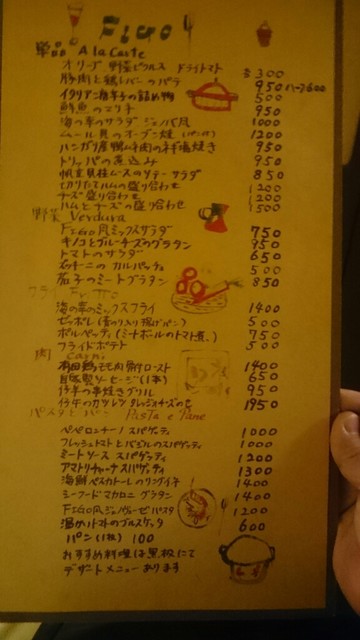 FIGO
単品 A la carte
オリーブ 野菜ピクルス ドライトマト 各300
豚肉と鶏レバーのパテ 950 ハーフ600
イタリアン唐辛子の詰め物 500
鮮魚のマリネ 950
海の幸のサラダ ジェノバ風 1000
ムール貝のオーブン焼 (パン付) 1200
ハンガリ産鴨ムネ肉のネギ塩焼き 950
トリッパの煮込み 950
帆立貝柱ムースのソテー サラダ 850
切りたてハムの盛り合わせ 1200
チーズ盛り合わせ 1200
ハムとチーズの盛り合わせ 1500
野菜 Verdura
FIGO風ミックスサラダ 750
キノコとブルーチーズのグラタン 950
トマトのサラダ 650
ズッキーニのカルパッチョ 500
茄子のミートグラタン 850
フライ Fritto
海の幸のミックスフライ 1400
ゼッポレ (青のり入り揚げパン) 500
ポルペッティ (ミートボールのトマト煮) 700
フライドポテト 500
肉 Carne
モモ肉骨付ロースト 1400
自家製ソーセージ (1本) 650
仔羊の串焼きグリル 950
仔牛のカツレツ チーズのせ 1950
パスタとパン Pasta e Pane
ペペロンチーノ スパゲッティ 1000
フレッシュトマトとバジルのスパゲッティ 1000
ミートソース スパゲッティ 1200
アマトリチャーナ スパゲッティ 1300
海鮮ペスカトーレのリングイネ 1400
シーフードマカロニ グラタン 1400
FIGO風ジェノヴェーゼ パスタ 1200
温かいトマトのブルスケッタ 600
パン (1枚) 100
おすすめ料理は黒板にて
デザートメニューあります